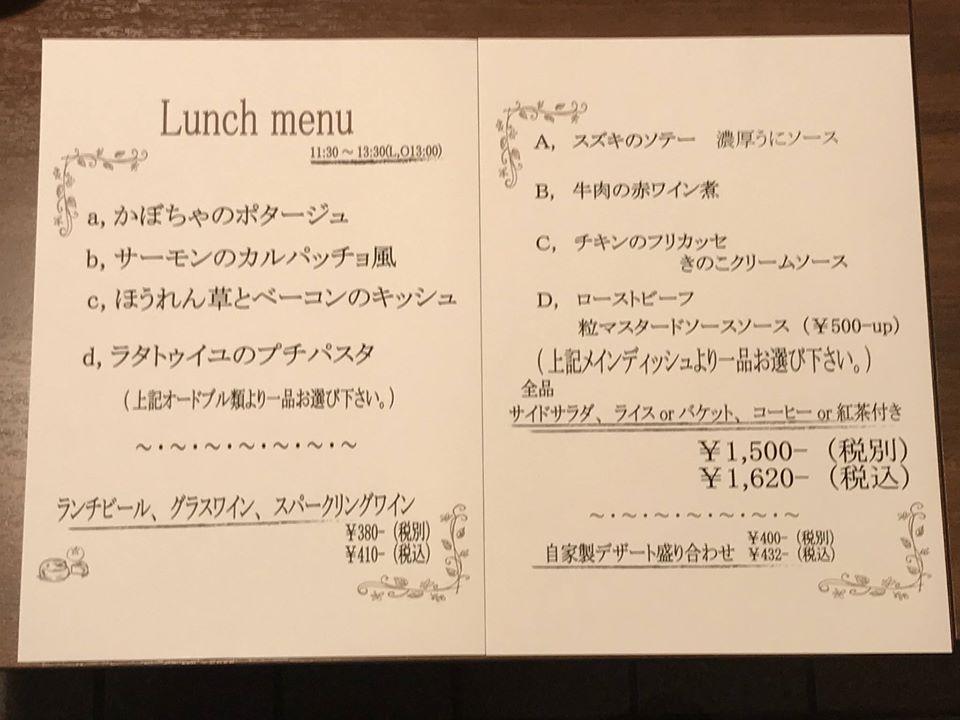 Lunch menu
11:30～13:30(L,O13:00)
a, かぼちゃのポタージュ
b, サーモンのカルパッチョ風
c, ほうれん草とベーコンのキッシュ
d, ラタトゥイユのプチパスタ
（上記オードブル類より一品お選び下さい。）
～・～・～・～・～・～・～
ランチビール、グラスワイン、スパークリングワイン
￥380-（税別）
￥410-（税込）
A, スズキのソテー 濃厚うにソース
B, 牛肉の赤ワイン煮
C, チキンのフリカッセ
きのこクリームソース
D, ローストビーフ
粒マスタードソースソース（￥500-up）
（上記メインディッシュより一品お選び下さい。）
全品
サイドサラダ、ライス or バケット、コーヒー or 紅茶付き
￥1,500-（税別）
￥1,620-（税込）
～・～・～・～・～・～・～
自家製デザート盛り合わせ ￥400-（税別）
￥432-（税込）